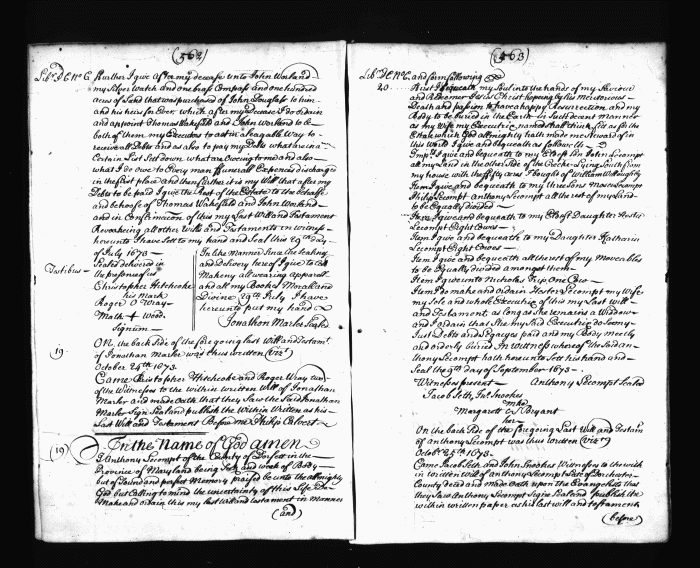 (562)
Lib: D C No 6. Further I give After my decease unto John Worland
my Silver Watch and one brass Compass and one hundred
acres of Land that was purchased of John Douglass to him
and his heirs for Ever. which after my decease I do ordain
and appoint Thomas Wakefield and John Worland to be
both of them my Executors to act in a legable Way to
receive all Debts and as also to pay my Debts what are in a
Certain List Set down what are oweing to me and also
what I do owe to Every man ffuneral Expences discharged
in the first place and then further it is my Will that after my
Debts to be paid I give the Rest of the Estate to the behalfe
and behoofe of Thomas Wakefield and John Worland
and in Confirmacon of this my Last Will and Testament
Revoakeing all other Wills and Testaments in Witness
hereunto I have Sett to my hand and Seal this 29th day
of July 1673
Sealed delivered in
the presence of us
Testibus
Christopher Hitchcocke
his Mark
Roger O Wray
Math + Wood.
Signum
In like manner Since the Sealing
and Delivery here of I give to
Maheny all wearing apparall
and all my Books Morall and
Divine 29th July I have
hereunto put my hand
Jonathon Marler Seale
On the back Side of the foregoing last Will and Testamt.
19. of Jonathan Marler was thus written (Vizt)
October 24th 1673.
Came Christopher Hitchcocke and Roger Wray two
of the Witnesses to the within written Will of Jonathan
Marler and made Oath that they Saw the Said Jonathan
Marler Sign Seal and publish the Within Written as his
Last Will and Testament Before me Philip Calvert
(19) In the Name of God Amen
I Anthony Lecompt of the County of Dorset in the
Province of Maryland being Sick and weak of Body
but of Sound and perfect Memory praised be unto the almighty
God but calling to mind the uncertainty of this Life do
Make and ordain this my last will and testament in manner
(and)
(563)
Lib: D C No 6. and form following
20 First I bequeath my Soul into the hands of my Saviour
and Redeemer Jesus Christ hopeing by his meritorious
Death and passion to have a happy Resurrection, and my
Body to be buried in the Earth in Such decent manner
as my Wife my Executrix named Shall think fitt as for the
Estate which God allmighty hath made me Steward of in
this World I give and bequeath as followeth
Imps. I give and bequeath to my Eldest Son John Lecompt
all my Land on the other Side of the Creeke Lying South from
my house with the ffifty acres I bought of William Willoughby
Item I give and bequeath to my three Sons Moses Lecompt
Philip Lecompt Anthony Lecompt all the rest of my Land
to be Equally divided
Item I give and bequeath to my Eldest Daughter Hester
Lecompt Eight Cowes
Item I give and bequeath to my Daughter Katharin
Lecompt Eight Cowes
Item I give and bequeath all the rest of my Moveables
to be Equally divided amongst them
Item I give unto Nicholas Trip One Cow
Item I do make and ordain Hester Lecompt my Wife
my Sole and whole Executrix of this my Last will
and Testament, as long as She remains a Widdow
and I ordain that She my Said Executrix do See my
Just Debts and Legacies paid and my Body meetly
and orderly buried In Witness whereof the Said An
thony Lecompt hath hereunto Sett his hand and
Seal the 9th day of September 1673
Witnesses present Anthony Lecompt Sealed
Jacob Seth, Jno. Snookes
mke
Margarett Bryant
her
On the back Side of the foregoing Last Will and Testamt
of Anthony Lecompt was thus written (Vizt)
October 25th 1673.
Came Jacob Seth and John Snookes Witnesses to the with
in written Will of Anthony Lecompt late of Dorchester
County deced and made Oath upon the Evangelists that
they Saw Anthony Lecompt Signe Seal and publish the
within written paper as his last will and testament
(before)